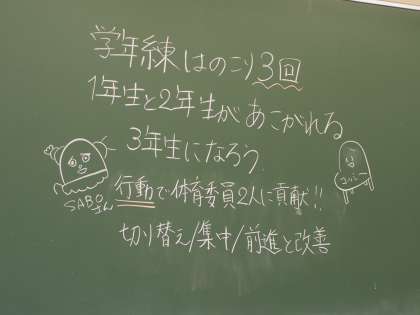 学年練はのこり3回
1年生と2年生があこがれる
3年生になろう
行動で体育委員2人に貢献!!
切り替え/集中/前進と改善
SABO
さん
は